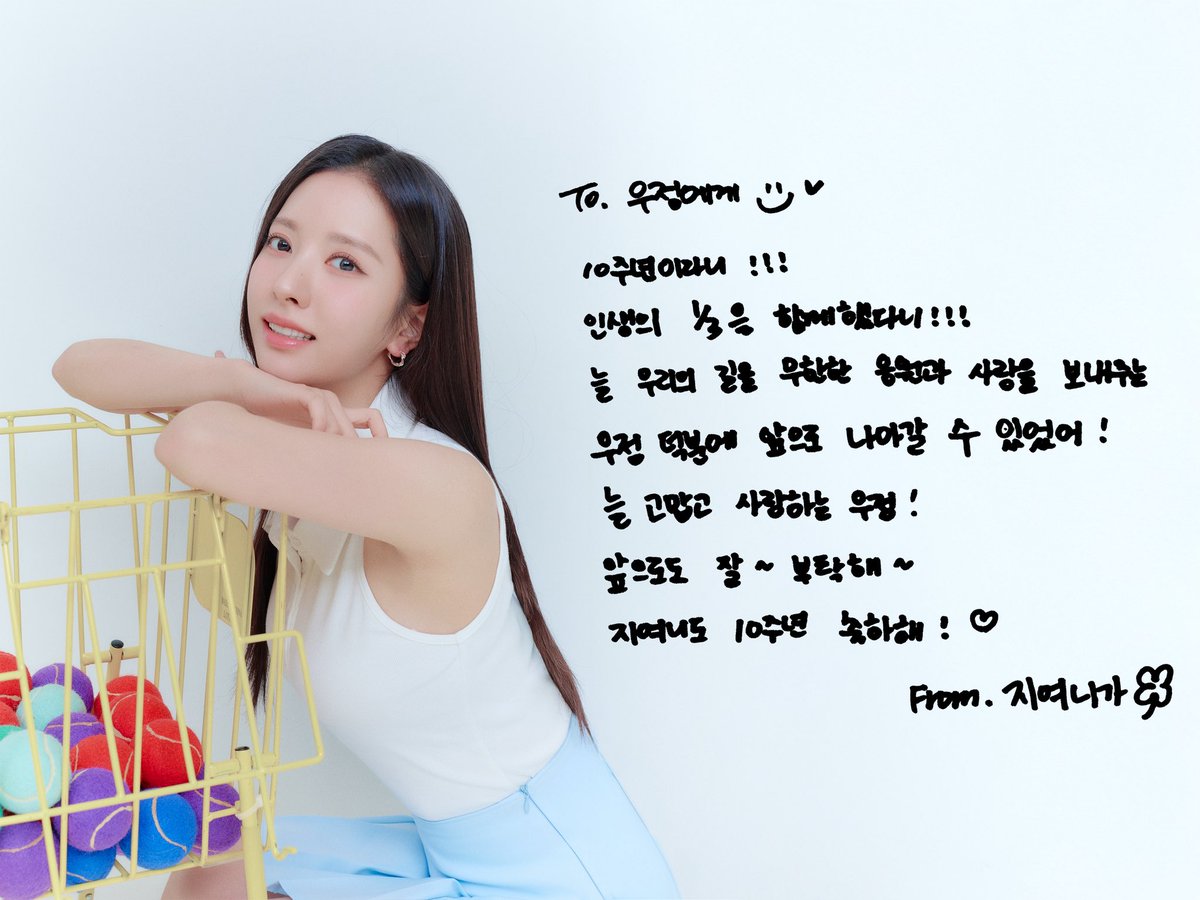 To. 우정에게
10주년이라니 !!!
인생의 1/3을 함께했다니!!!
늘 우리의 길을 무한한 응원과 사랑을 보내주는
우정 덕분에 앞으로 나아갈 수 있었어!
늘 고맙고 사랑하는 우정!
앞으로도 잘~ 부탁해~
지여니도 10주년 축하해! ♡
From. 지여니가